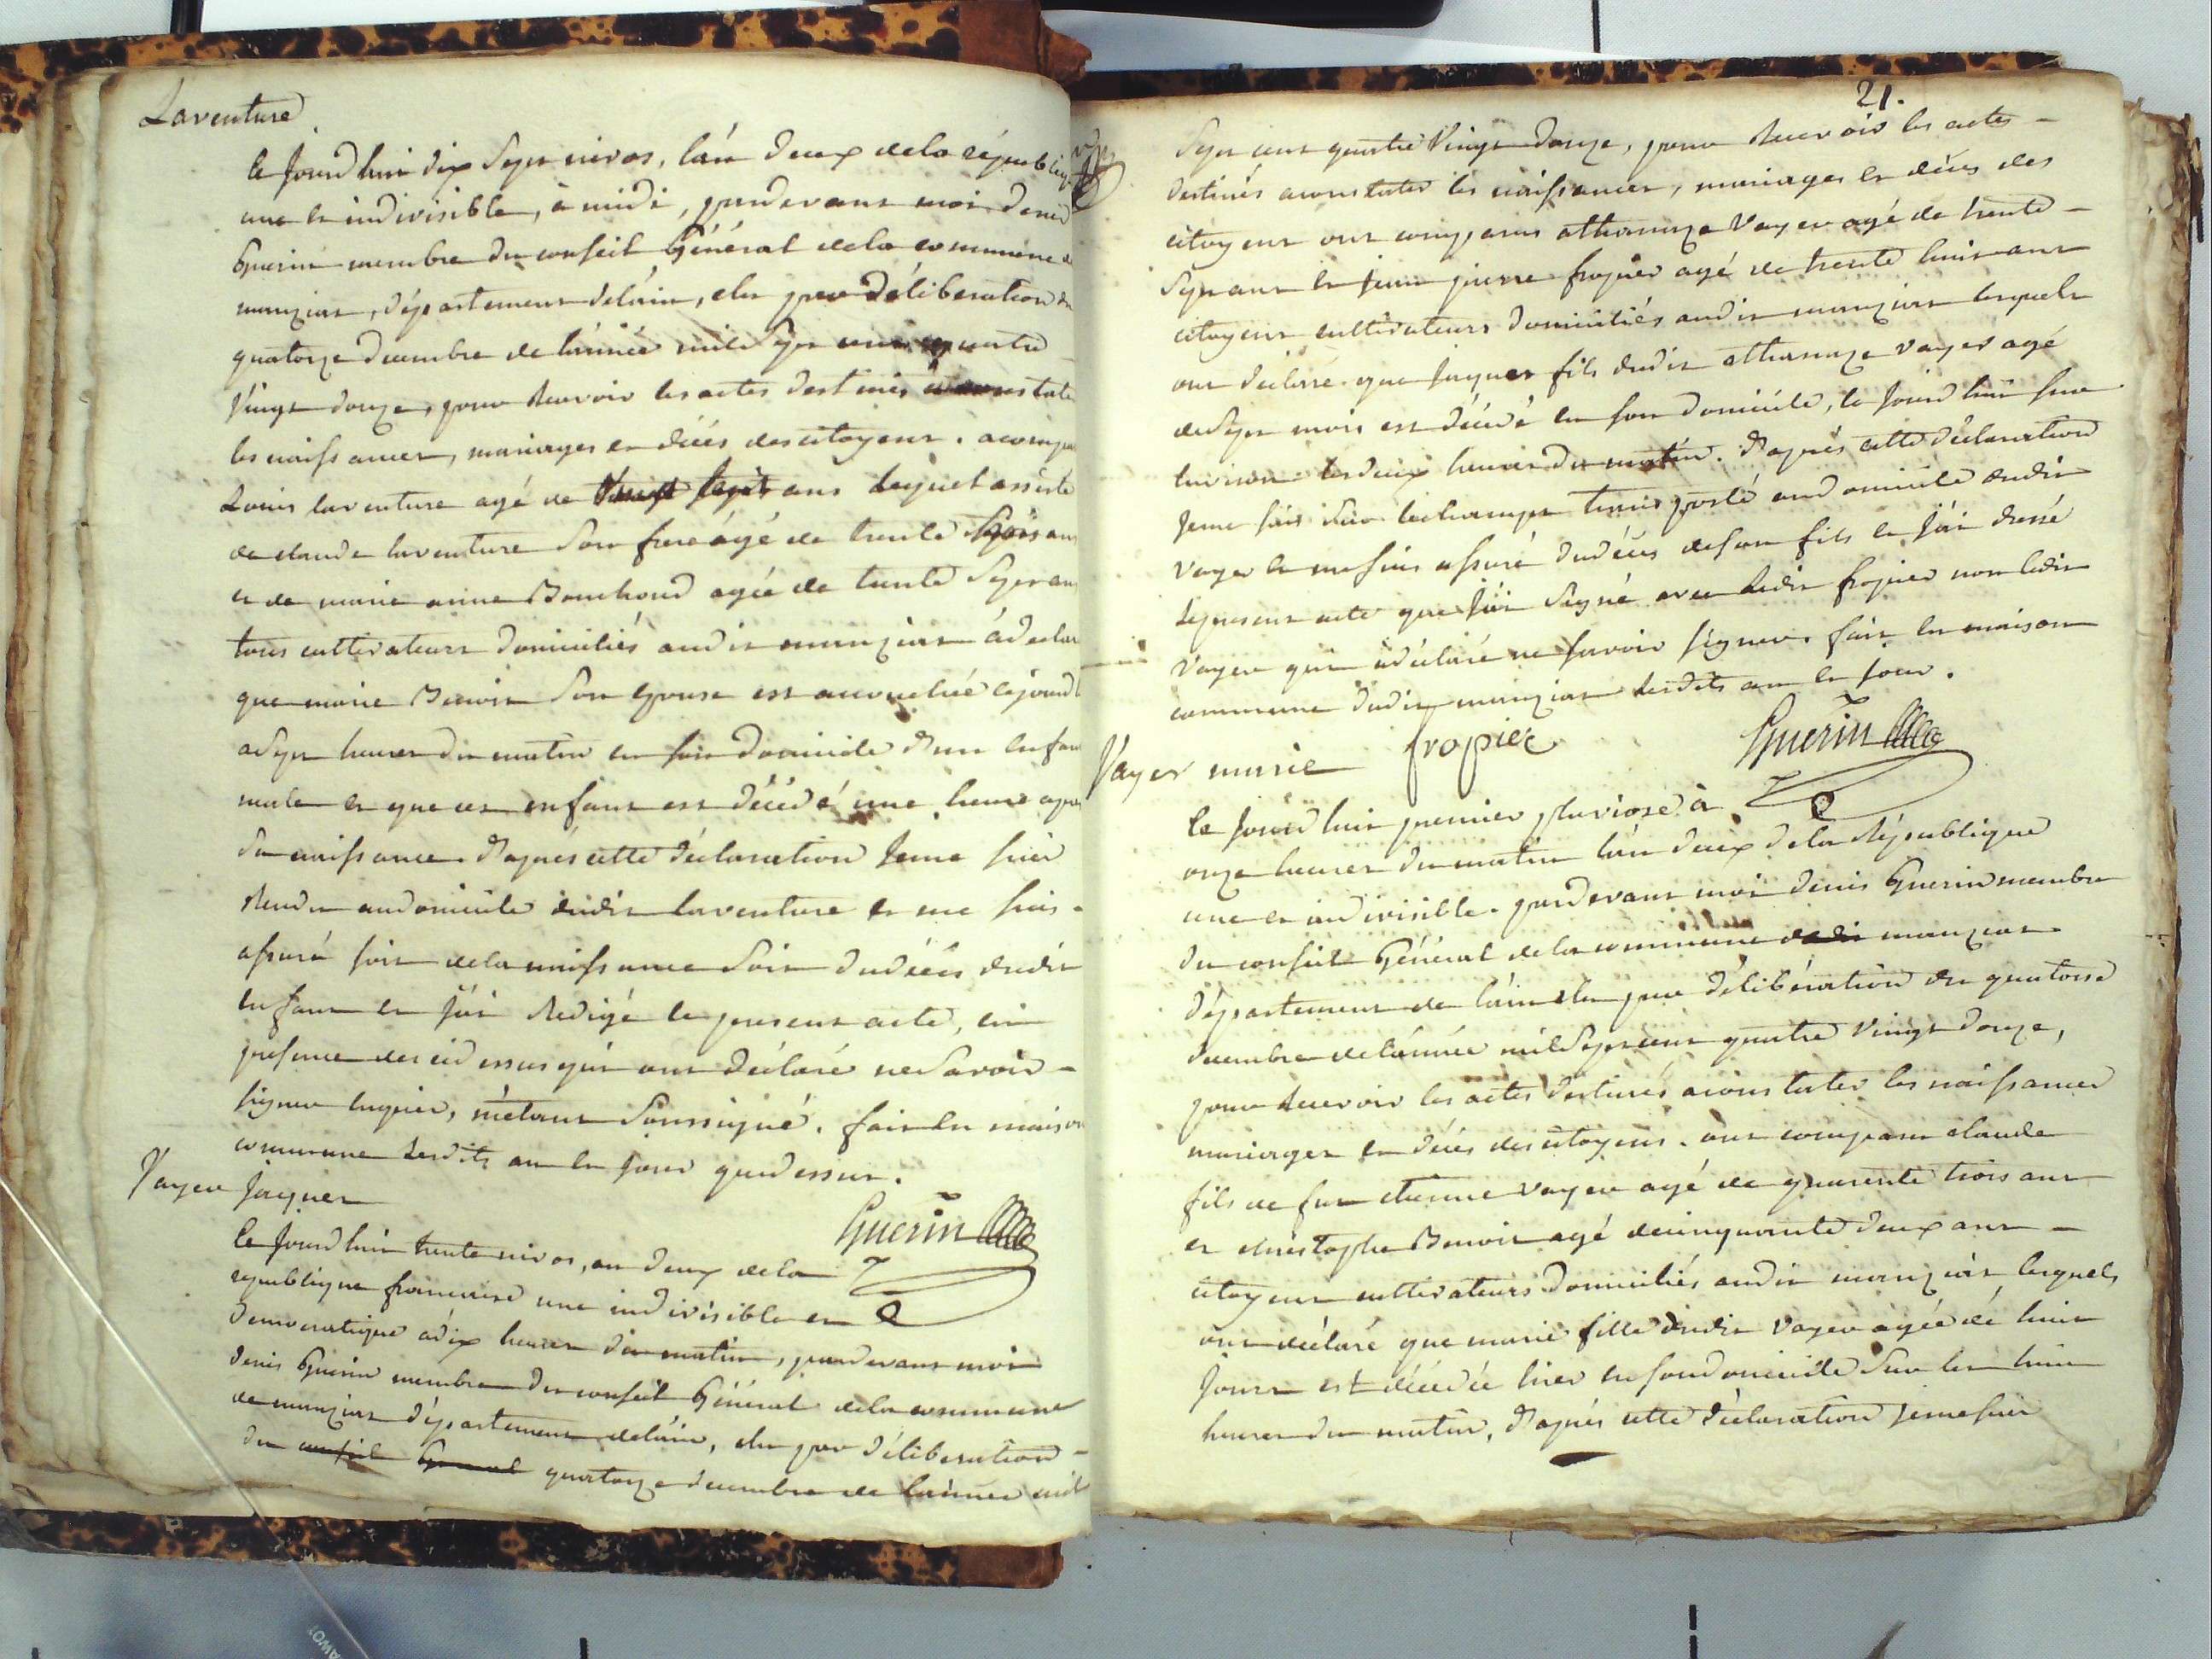 Laventure
Ce Jourdhui dix Sept nivos, l'an deux dela républiq
une et indivisible, à midi, pardevant moi denis
Guerin membre du conseil Général dela commune de
manziat, département delain, elu par Délibération du
quatorze decembre de l'année mil Sept cent quatre
Vingt douze, pour Recevoir les actes destinés a constater
les naissances, mariages et décès des citoyens. a comparu
Louis laventure agé de ans lequel assisté
de claude laventure Son frere âgé de trente ans
et de marie anne Bouchoud agée de trente Sept ans
tous cultivateurs domiciliés audit manziat à declaré
que marie Benoit Son Epouse est accouchée cejourd
a Sept heures du matin en son domicile d'un enfant
male et que cet enfant est décédé une heure apres
Sa naissance. D'après cette déclaration Jeme suis
Rendu audomicile dudit laventure et me suis
assuré soit dela naissance Soit dudécès dudit
enfant et J'ai Redigé le present acte, en
presence des cidessus qui ont déclaré ne Savoir -
signer enquis, m'étant Soussigné. fait en maison
commune Lesdits an et jour quedessus.
Guerin
Vayer Jaques
Ce Jourdhui trente nivos, an deux dela
republique francaise une indivisible et
Democratique à dix heures du matin, pardevant moi
denis Guerin membre du conseil Général dela commune
de manziat département delain, elu par délibération -
du conseil General quatorze decembre de l'année mil
21.
Sept cent quatre Vingt douze, pour Recevoir les actes -
destinés aconstater les naissances, mariages et décès des
citoyens ont comparus athanaze Vayer agé de trente -
Sept ans et Jean pierre fropier agé de trente huit ans
citoyens cultivateurs domiciliés audit manziat lesquels
ont déclaré que Jaques fils dudit athanaze vayer agé
de Sept mois est décédé en son domicile, ce Jourdhui sur
environ les deux heures du matin. D'après cette déclaration
Jeme suis Sur lechamps transporté audomicile dudit
vayer et me suis assuré dudécès deson fils et J'ai dressé
Lepresent acte que J'ai Signé avec Ledit fropier non ledit
Vayer qui a déclaré ne savoir signer. fait en maison
commune dudit manziat Lesdits an et jour.
fropier Guerin
Vayer marie
Ce Jourdhui premier pluviose à
onze heures du matin l'an deux dela République
une et indivisible. pardevant moi denis Guerin membre
du conseil Général dela commune manziat
département de l'ain elu par délibération du quatorse
decembre de l'année mil Sept cent quatre Vingt douze,
pour Recevoir les actes destinés aconstater les naissances
mariages et décès des citoyens. ont comparu claude
fils de feu etienne vayer agé de quarente trois ans
et christophe Benoit agé decinquante deux ans -
citoyens cultivateurs domiciliés audit manziat lesquels
ont déclaré que marie fille dudit vayer agée de huit
Jours est décédée hier en sondomicile Sur les huit
heures du matin, D'après cette déclaration Jeme suis